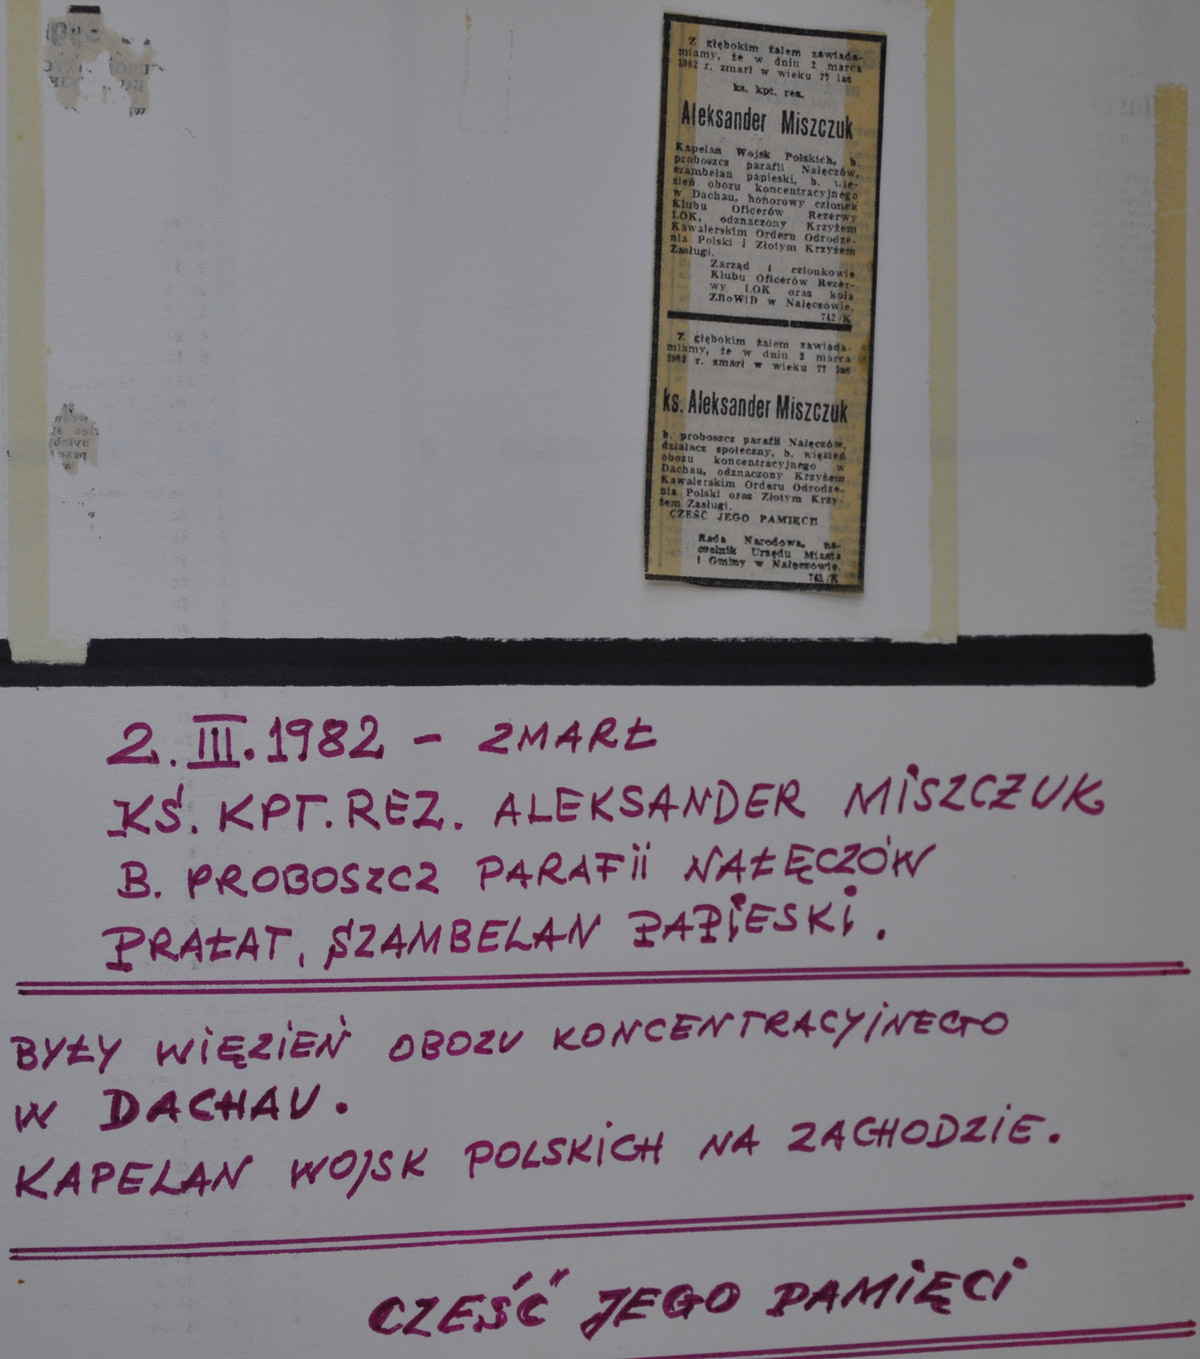 Z głębokim żalem zawiada-
miamy, że w dniu 2 marca
1982 r. zmarł w wieku 77 lat
ks. kpt. rez.
Aleksander Miszczuk
Kapelan Wojsk Polskich, b.
proboszcz parafii Nałęczów,
szambelan papieski, b. wię-
zień obozu koncentracyjnego
w Dachau, honorowy członek
Klubu Oficerów Rezerwy
LOK, odznaczony Krzyżem
Kawalerskim Orderu Odrodze-
nia Polski i Złotym Krzyżem
Zasługi.
Zarząd i członkowie
Klubu Oficerów Rezer-
wy LOK oraz koła
ZBoWiD w Nałęczowie.
742/K
Z głębokim żalem zawiada-
miamy, że w dniu 2 marca
1982 r. zmarł w wieku 77 lat
ks. Aleksander Miszczuk
b. proboszcz parafii Nałęczów,
działacz społeczny, b. więzień
obozu koncentracyjnego w
Dachau, odznaczony Krzyżem
Kawalerskim Orderu Odrodze-
nia Polski oraz Złotym Krzy-
żem Zasługi.
CZEŚĆ JEGO PAMIĘCI!
Rada Narodowa, na-
czelnik Urzędu Miasta
i Gminy w Nałęczowie.
761/K
2. III. 1982 - ZMARŁ
KŚ. KPT. REZ. ALEKSANDER MISZCZUK
B. PROBOSZCZ PARAFII NAŁĘCZÓW
PRAŁAT, SZAMBELAN PAPIESKI.
BYŁY WIĘZIEŃ OBOZU KONCENTRACYJNEGO
W DACHAU.
KAPELAN WOJSK POLSKICH NA ZACHODZIE.
CZEŚĆ JEGO PAMIĘCI